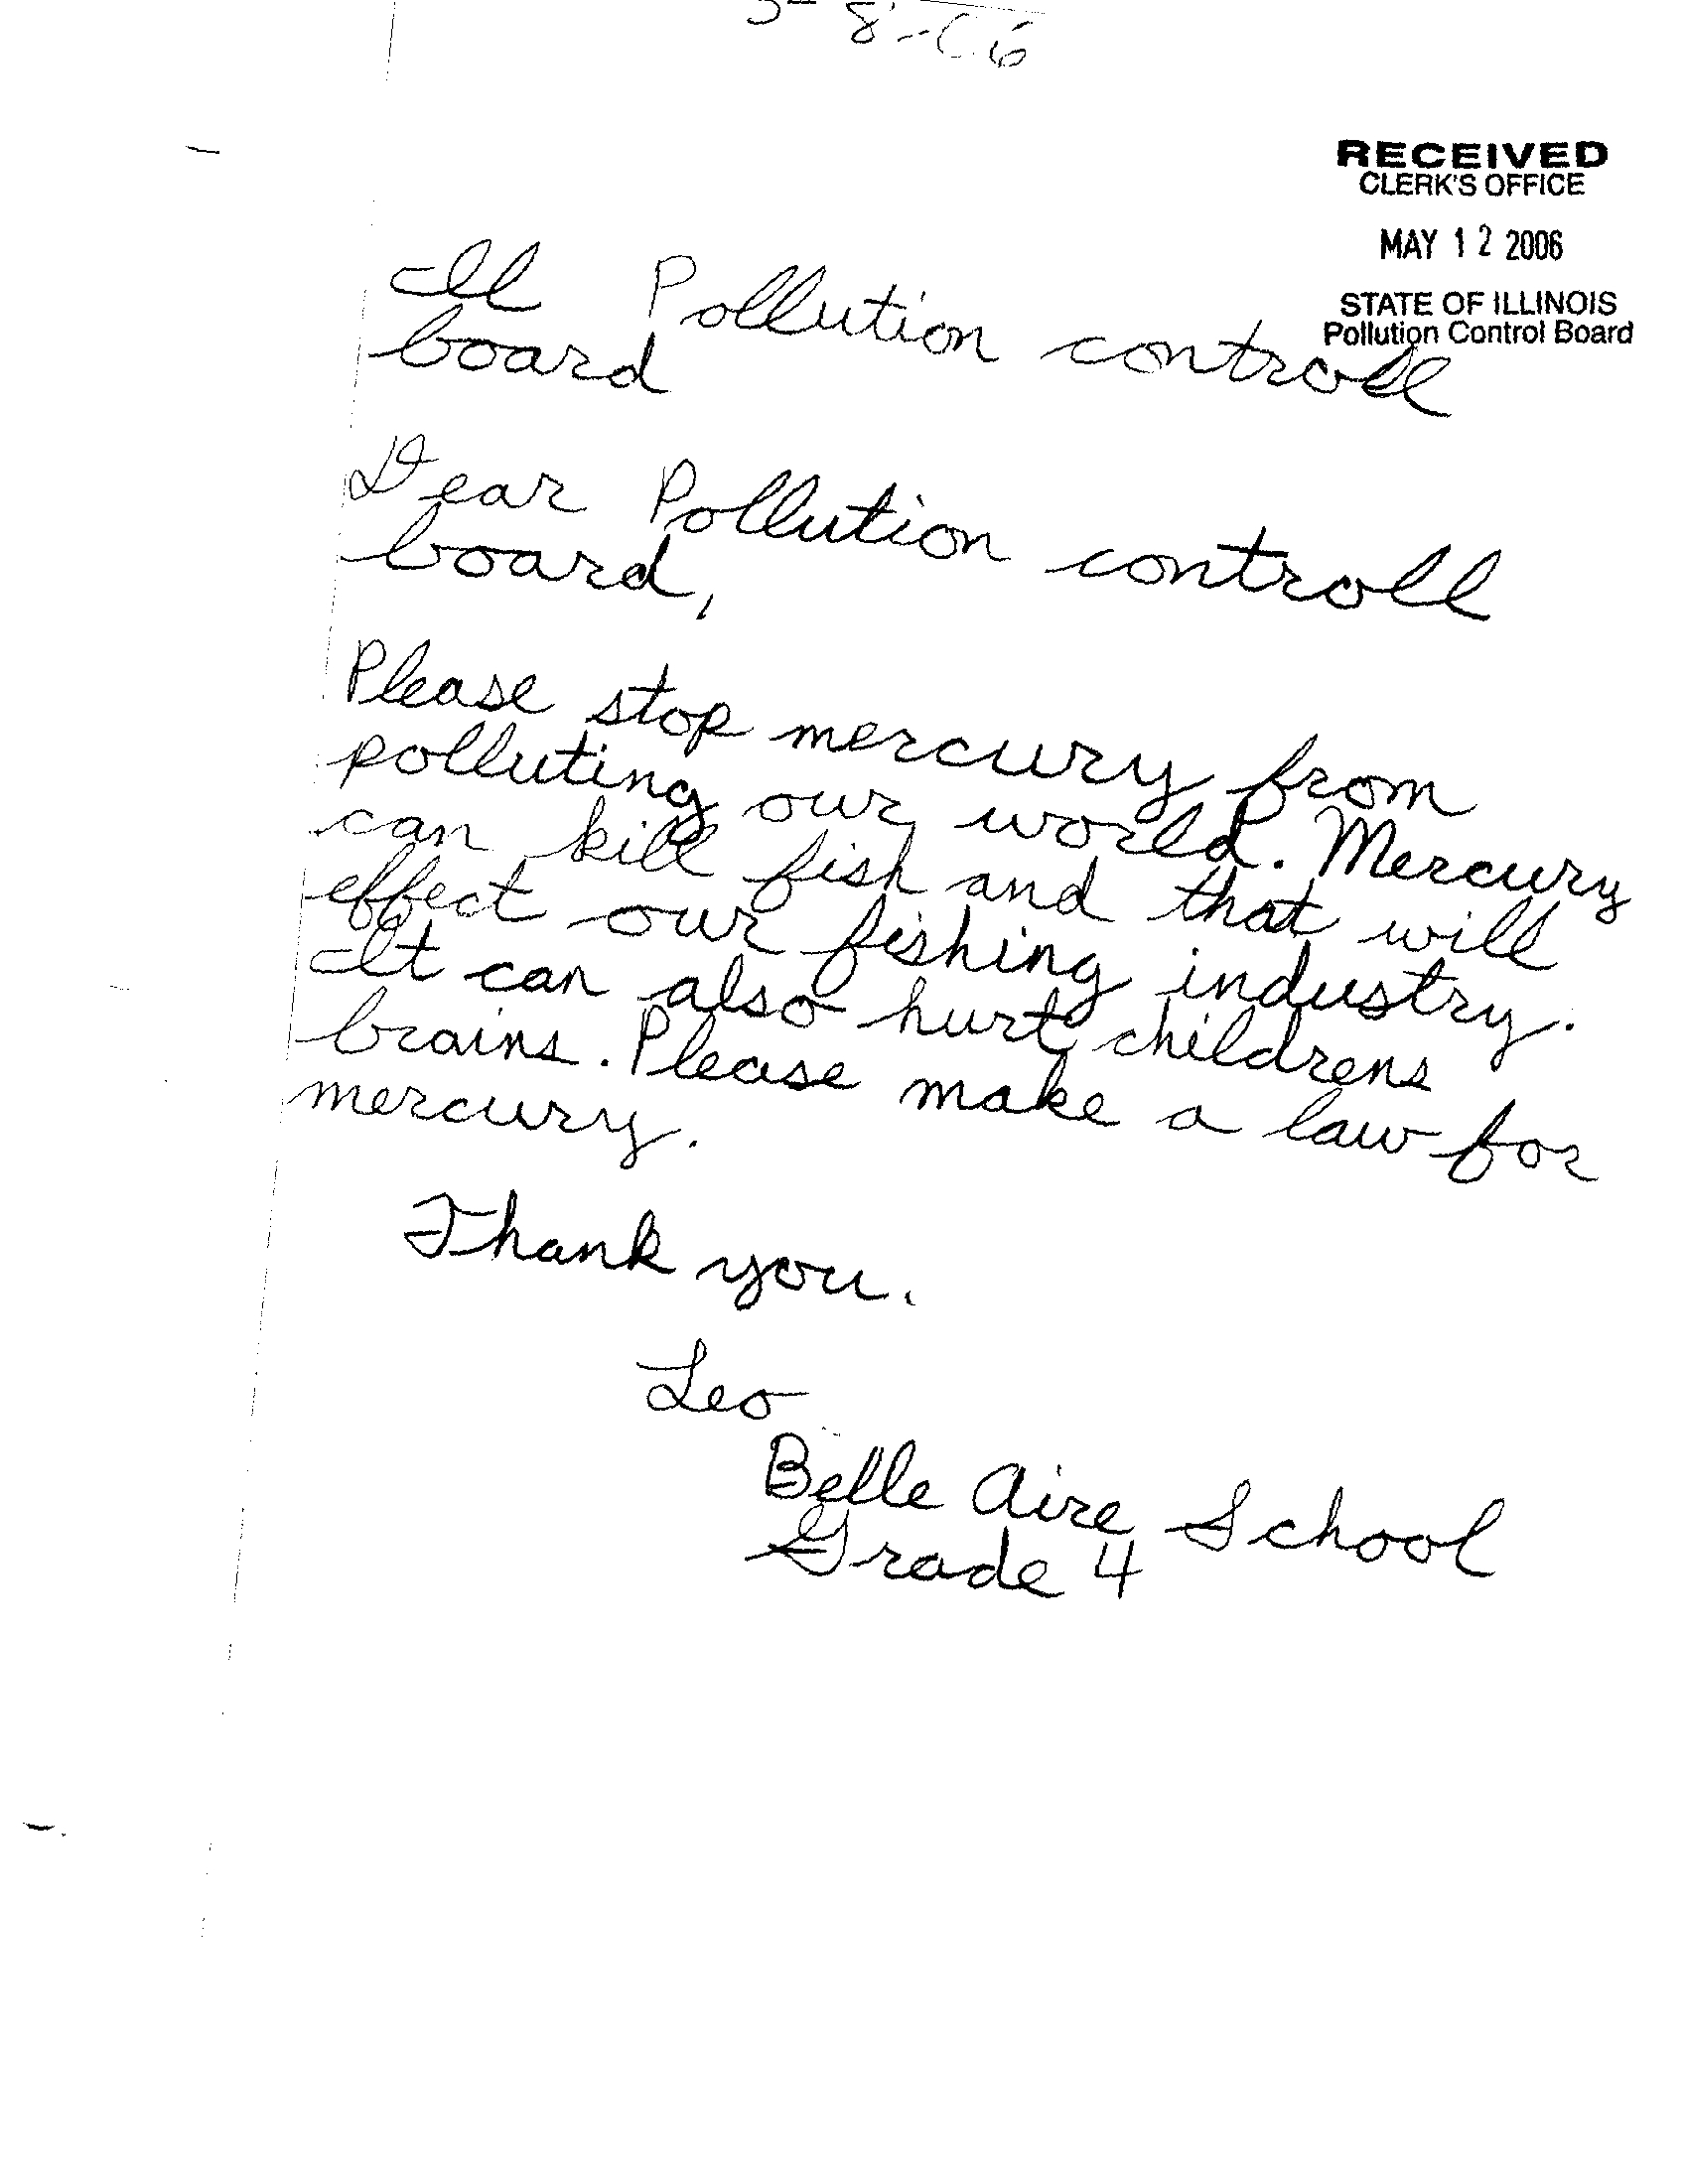 5-8-06
RECEIVED
CLERK'S OFFICE
MAY 12 2006
STATE OF ILLINOIS
Pollution Control Board
Ill Pollution controll
board
Dear Pollution controll
board,
Please stop mercury from
polluting our world. Mercury
can kill fish and that will
effect our fishing industry.
It can also hurt childrens
brains. Please make a law for
mercury.
Thank you.
Leo
Belle Aire School
Grade 4